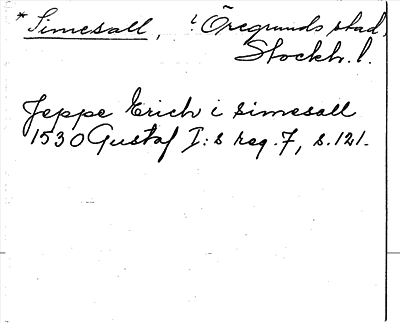 *Simesall, i Öregrunds stad,
Stockh. l.
Jeppe Erich i simesall
1530 Gustaf I:s reg. 7, s. 121.